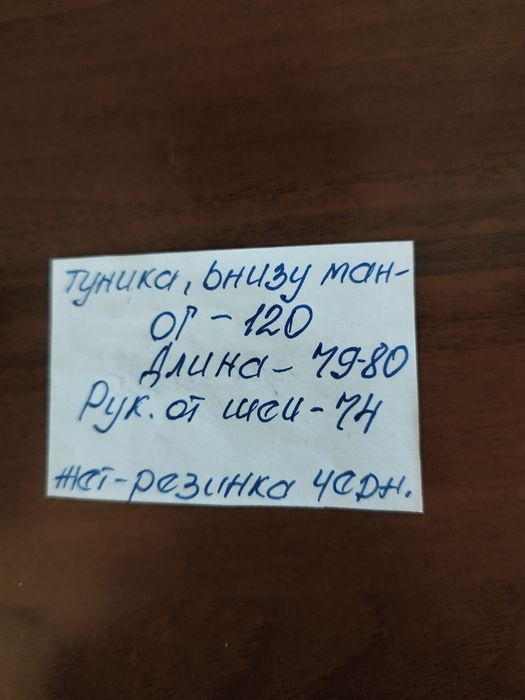 туника, внизу ман-
ОГ - 120
Длина - 79-80
Рук. от шеи - 74
жет-резинка черн.